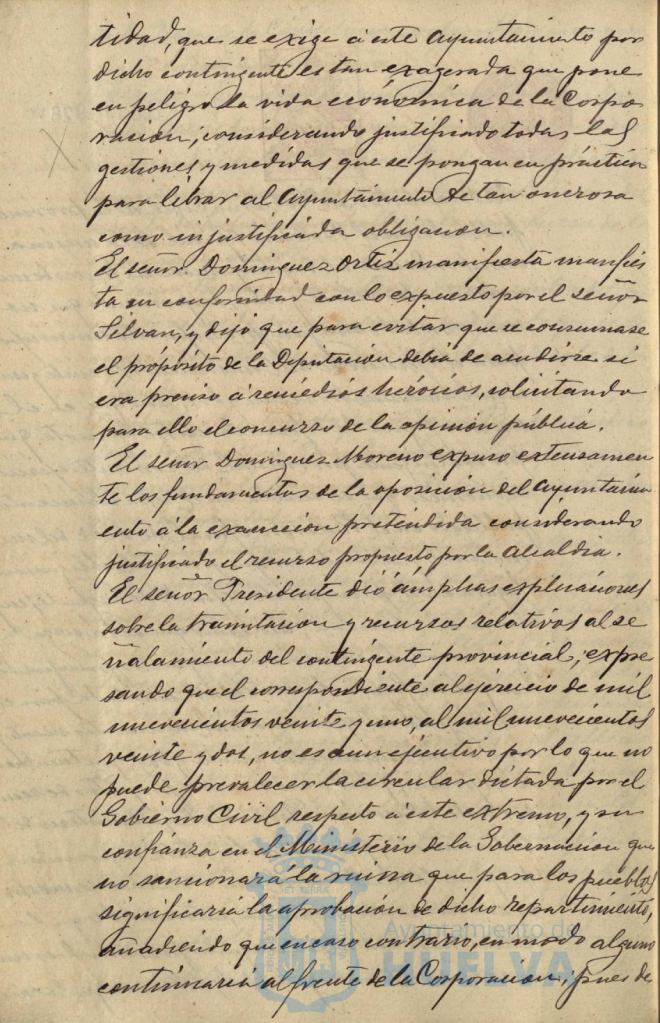 tidad, que se exige á este Ayuntamiento por
dicho contingente es tan exagerada que pone
en peligro la vida económica de la Corpo
ración; considerando justificado todas las
gestiones y medidas que se pongan en práctica
para librar al Ayuntamiento de tan onerosa
como injustificada obligacion.
El señor Dominguez Ortiz manifiesta manfies
ta su conformidad con lo expuesto por el señor
Silvan, y dijo que para evitar que se consumase
el propósito de la Diputación debia de acudirse si
era preciso á remedios heróicos, solicitando
para ello el concurso de la opinión pública.
El señor Dominguez Moreno expuso extensamen
te los fundamentos de la oposición del Ayuntami
ento á la exaccion pretendida considerando
justificado el recurso propuesto por la Alcaldia.
El señor Presidente dió ámplias explicaciones
sobre la tramitacion y recursos relativos al se
ñalamiento del contingente provincial; expre
sando que el correspondiente al ejercicio de mil
nuevecientos veinte y uno, al mil nuevecientos
veinte y dos, no es aun ejecutivo por lo que no
puede prevalecer la circular dictada por el
Gobierno Civil respecto á este extremo, y su
confianza en el Ministerio de la Gobernacion que
no sancionará la ruina que para los pueblos
significaria la aprobación de dicho repartimiento,
añadiendo que en caso contrario, en modo alguno
continuaria al frente de la Corporacion; pues de
Ayuntamiento de
HUELVA